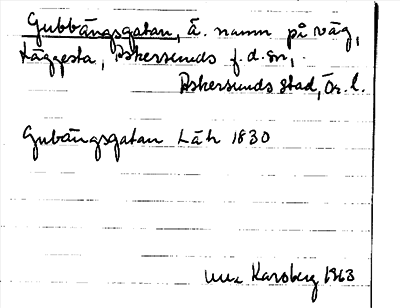 Gubbängsgatan, ä. namn på väg,
Häggesta, Askersunds f.d. sn,
Askersunds stad, Ör. l.
Gubängsgatan LäH 1830
Karsberg 1963